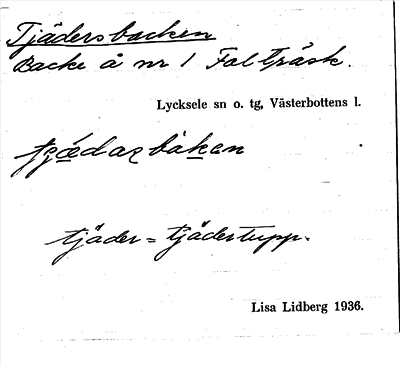 Tjädersbacken
Backe å nr 1 Falträsk.
Lycksele sn o. tg, Västerbottens l.
tjäder = tjädertupp.
Lisa Lidberg 1936.